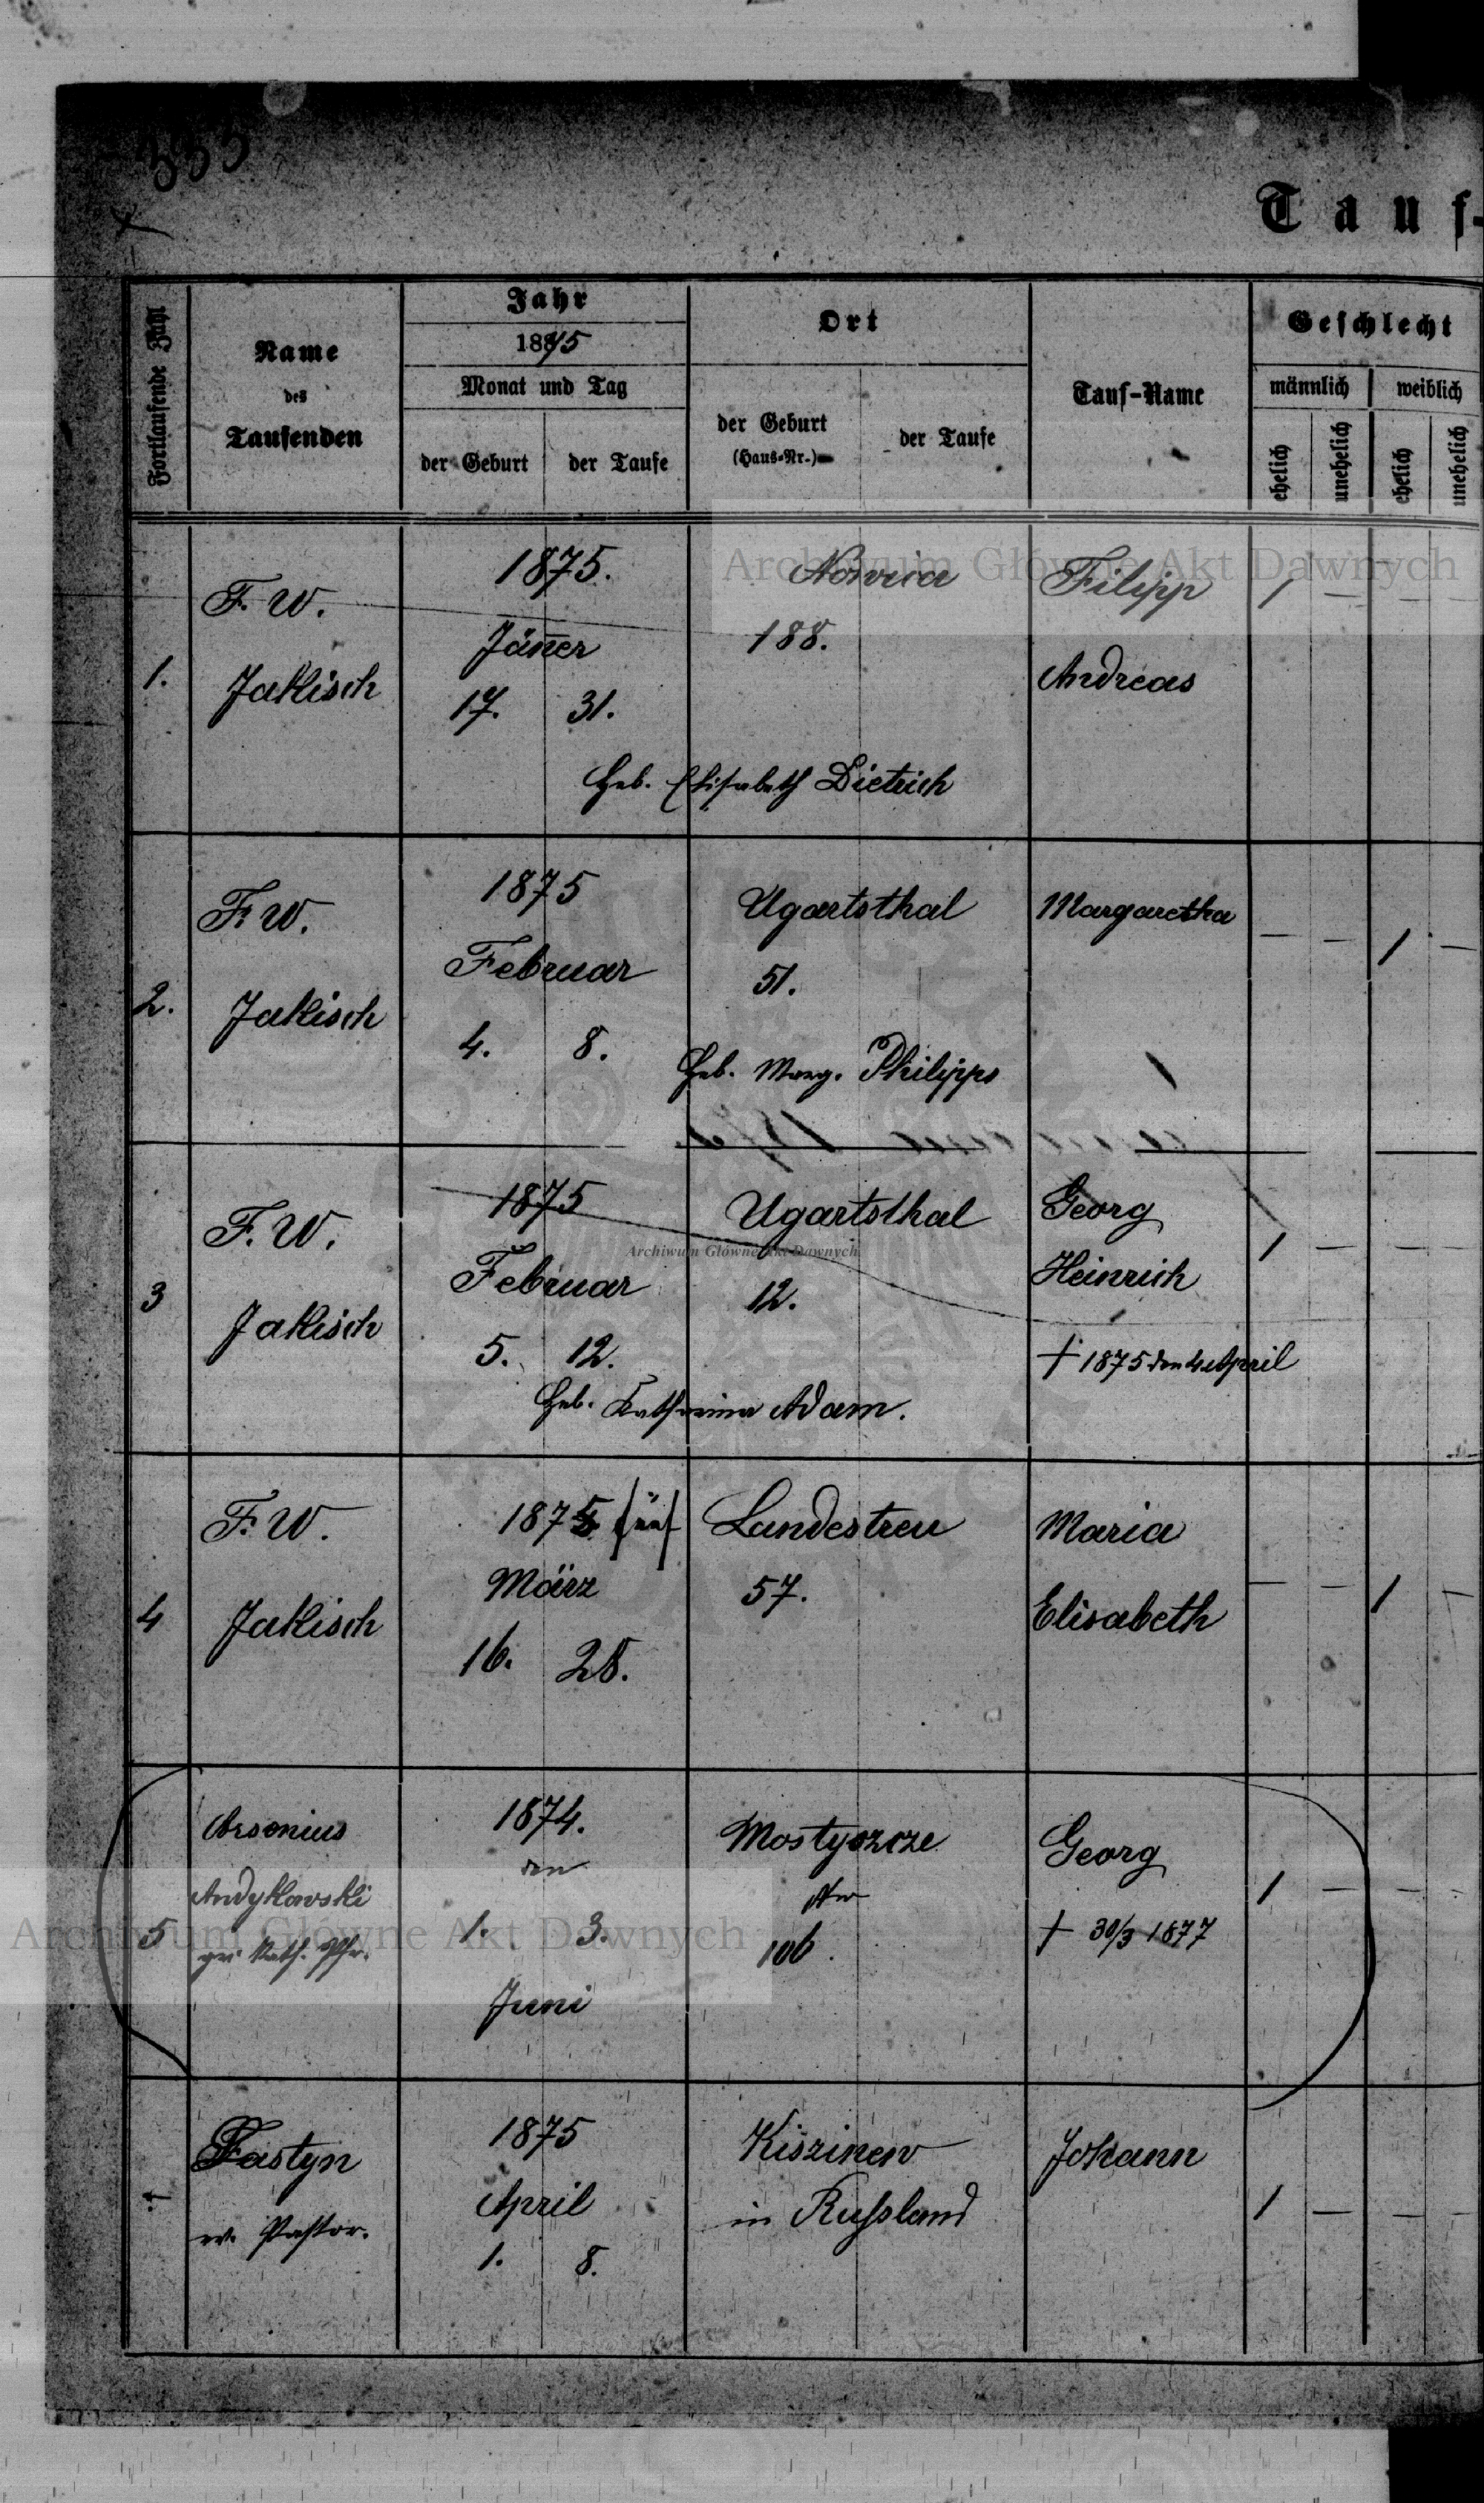 333
Tauf-
Fortlaufende Zahl
Name
des
Taufenden
Jahr
1875
Monat und Tag
der Geburt
der Taufe
Ort
der Geburt
(Haus-Nr.)
der Taufe
Tauf-Name
Geschlecht
männlich
weiblich
ehelich
unehelich
ehelich
unehelich
1.
F. W.
Jakisch
1875.
Jäner
17. 31.
Nowica
188.
Heb. Elisabeth Dietrich
Filipp
Andreas
1 — — —
2.
F. W.
Jakisch
1875
Februar
4. 8.
Ugartsthal
51.
Heb. Marg. Philipps
Margaretha
— — 1 —
3
F. W.
Jakisch
1875
Februar
5. 12.
Ugartsthal
12.
Heb. Katharina Adam.
Georg
Heinrich
† 1875 den 4 April
1 — — —
4
F. W.
Jakisch
1875 fünf
März
16. 28.
Landestreu
57.
Maria
Elisabeth
— — 1 —
5
Arsonius
Andykowski
gr. kath. Pfr.
1874.
den
1. 3.
Juni
Mostyszcze
Nr
106.
Georg
† 30/3 1877
1 — — —
Fastyn
ev. Pastor.
1875
April
1. 8.
Kiszinew
in Russland
Johann
1 — — —
Archiwum Główne Akt Dawnych
Archiwum Główne Akt Dawnych
Archiwum Główne Akt Dawnych